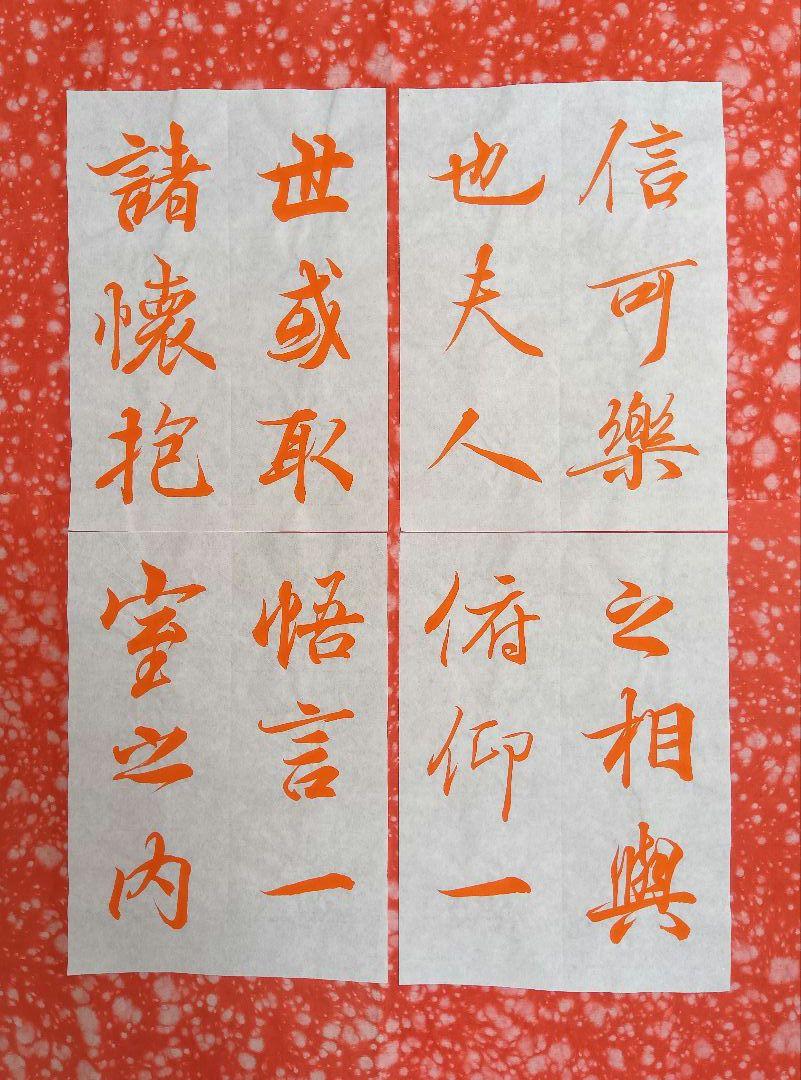 信可樂
也夫人
之相與
俯仰一
世或取
諸懷抱
悟言一
室之内